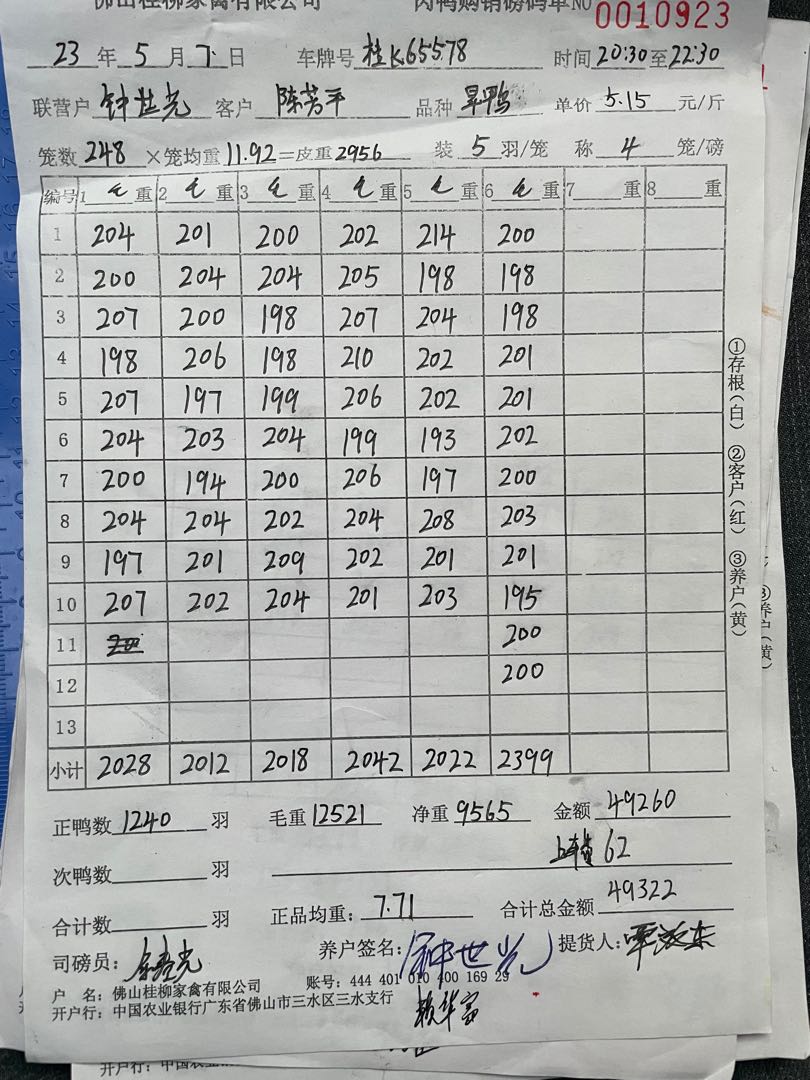 佛山桂柳家禽有限公司 肉鸭购销磅码单 NO 0010923
23 年 5 月 7 日 车牌号 桂K65578 时间 20:30 至 22:30
联营户 钟世光 客户 陈芳平 品种 旱鸭 单价 5.15 元/斤
笼数 248 ×笼均重 11.92 =皮重 2956 装 5 羽/笼 称 4 笼/磅
编号 1 毛 重 2 毛 重 3 毛 重 4 毛 重 5 毛 重 6 毛 重 7 重 8 重
1 204 201 200 202 214 200
2 200 204 204 205 198 198
3 207 200 198 207 204 198
4 198 206 198 210 202 201
5 207 197 199 206 202 201
6 204 203 204 199 193 202
7 200 194 200 206 197 200
8 204 204 202 204 208 203
9 197 201 209 202 201 201
10 207 202 204 201 203 195
11 200
12 200
13
小计 2028 2012 2018 2042 2022 2399
①存根(白) ②客户(红) ③养户(黄)
③养户(黄)
正鸭数 1240 羽 毛重 12521 净重 9565 金额 49260
次鸭数 羽 上车费 62
合计数 羽 正品均重: 7.71 合计总金额 49322
司磅员: 养户签名: 钟世光 提货人:
户 名: 佛山桂柳家禽有限公司 账号: 444 401 010 400 169 29
开户行: 中国农业银行广东省佛山市三水区三水支行
赖华富
开户行: 中国农业银